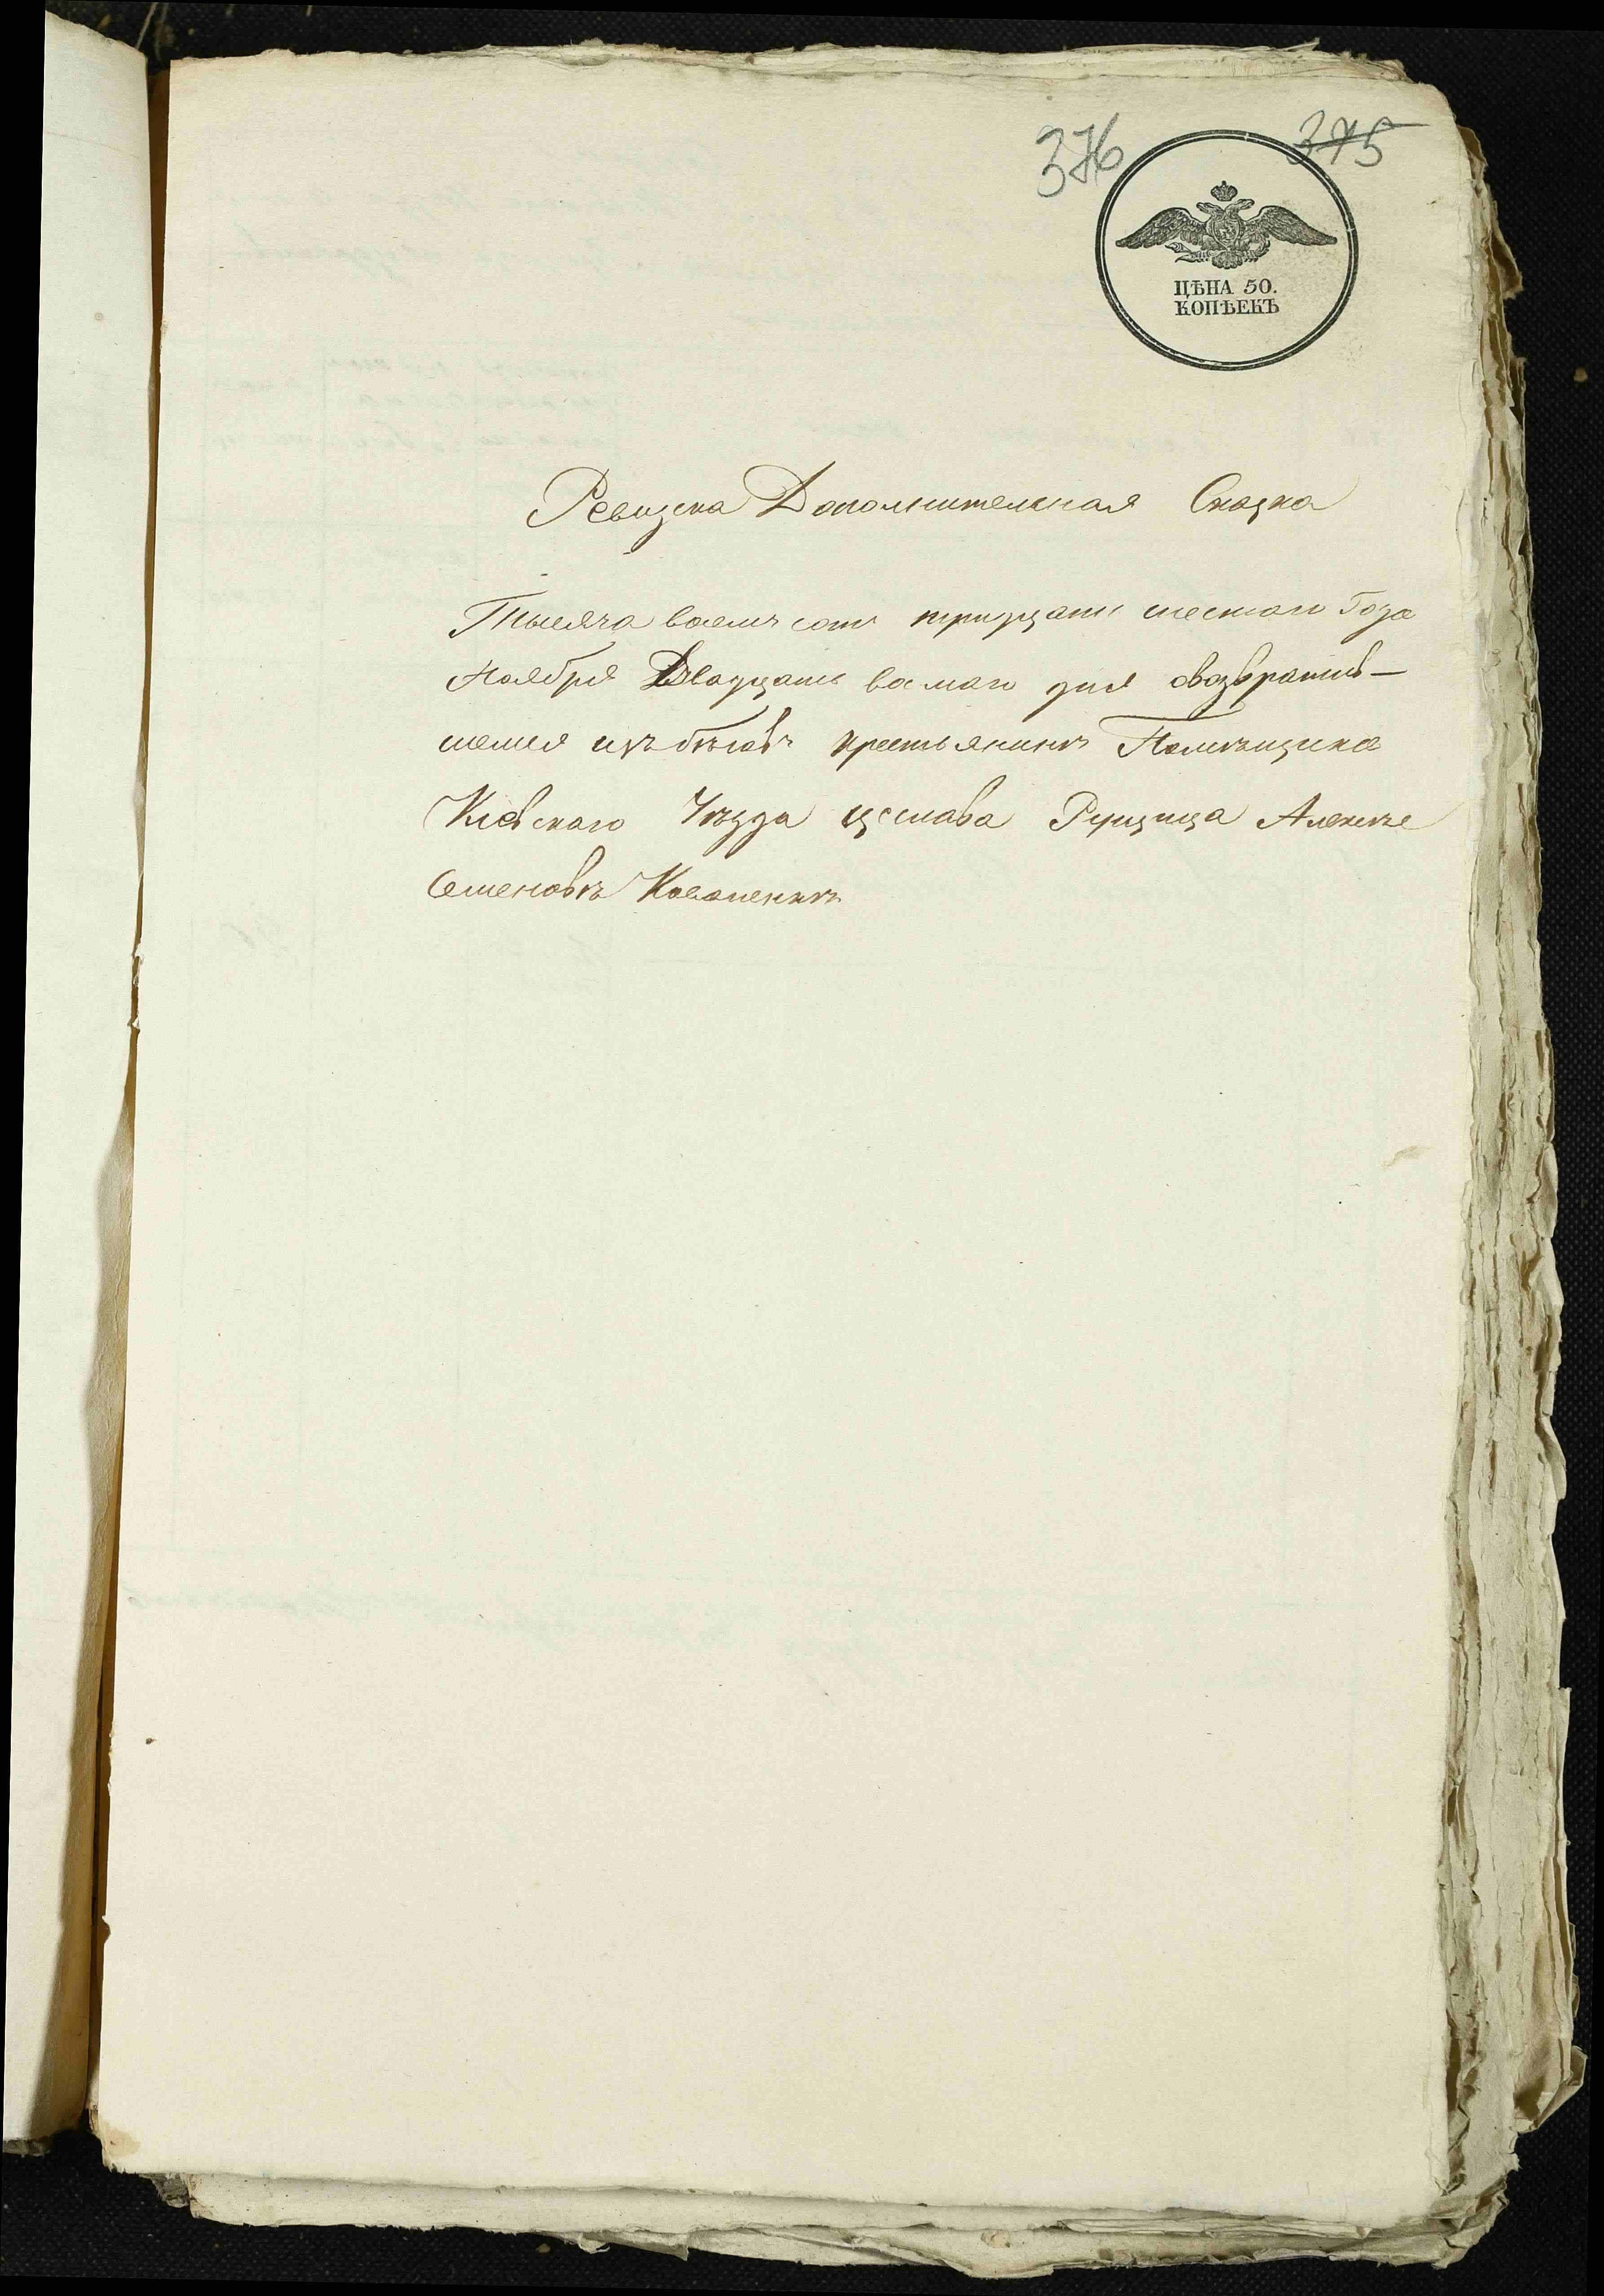 376 375
ЦѢНА 50.
КОПѢЕКЪ
Ревизска Дополнительная Сказка
Тысяча восемъ сотъ тридцать шестаго Года
Ноября Двадцать восмаго дня овозвратив-
шемся изъ бѣговъ крестьянинѣ Помѣщика
Кіевскаго Уѣзда Цеслава Рущица Алексѣе
Семеновѣ